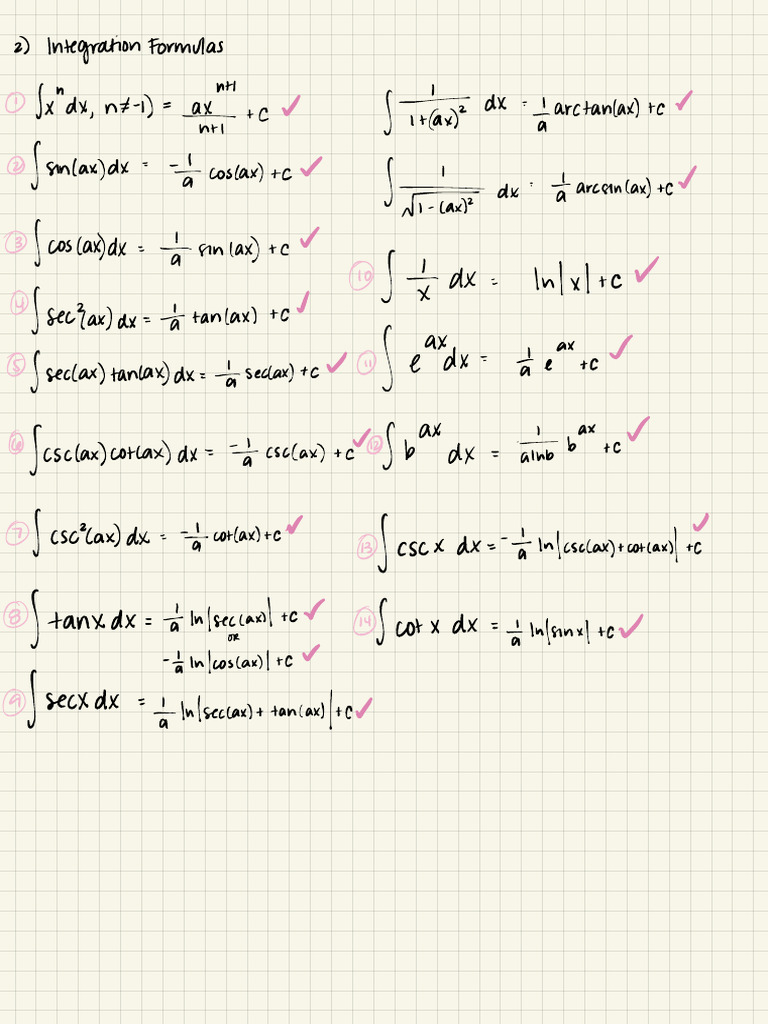 2) Integration Formulas
① ∫xⁿ dx, n≠-1) = axⁿ⁺¹/n+1 + c ✓
② ∫ sin(ax) dx = -1/a cos(ax) + c ✓
③ ∫ cos(ax) dx = 1/a sin(ax) + c ✓
④ ∫ sec²(ax) dx = 1/a tan(ax) + c ✓
⑤ ∫ sec(ax) tan(ax) dx = 1/a sec(ax) + c ✓
⑥ ∫ csc(ax) cot(ax) dx = -1/a csc(ax) + c ✓
⑦ ∫ csc²(ax) dx = -1/a cot(ax) + c ✓
⑧ ∫ tanx dx = 1/a ln|sec(ax)| + c ✓
or
-1/a ln|cos(ax)| + c ✓
⑨ ∫ secx dx = 1/a ln|sec(ax) + tan(ax)| + c ✓
∫ 1/1+(ax)² dx = 1/a arctan(ax) + c ✓
∫ 1/√1-(ax)² dx = 1/a arcsin(ax) + c ✓
⑩ ∫ 1/x dx = ln|x| + c ✓
⑪ ∫ e^ax dx = 1/a e^ax + c ✓
⑫ ∫ b^ax dx = 1/alnb b^ax + c ✓
⑬ ∫ csc x dx = -1/a ln|csc(ax) + cot(ax)| + c ✓
⑭ ∫ cot x dx = 1/a ln|sinx| + c ✓